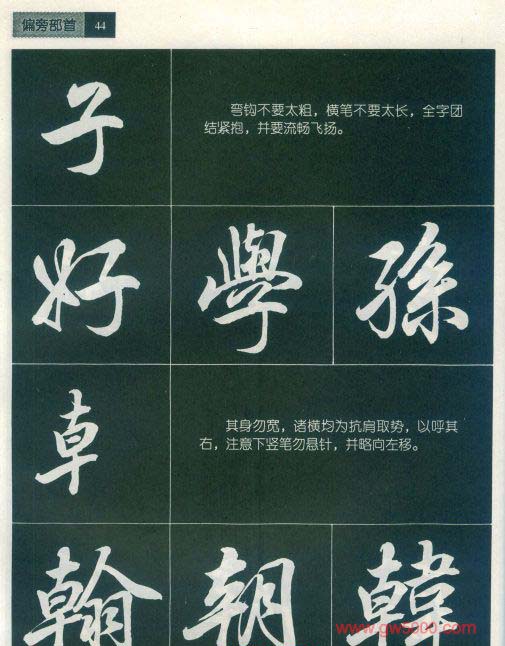 偏旁部首 44
子
弯钩不要太粗，横笔不要太长，全字团
结紧抱，并要流畅飞扬。
好 學 孫
卓
其身勿宽，诸横均为抗肩取势，以呼其
右，注意下竖笔勿悬针，并略向左移。
翰 朝 韓
www.gw5000.com